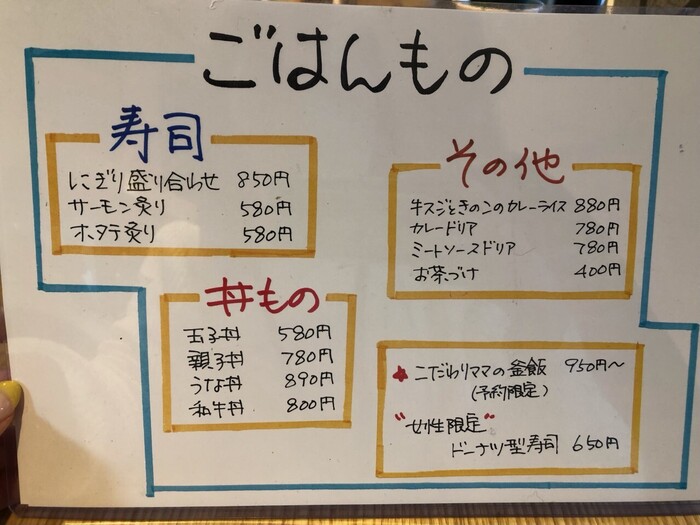 ごはんもの
寿司
にぎり盛り合わせ 850円
サーモン炙り 580円
ホタテ炙り 580円
その他
牛スジときのこのカレーライス 880円
カレードリア 780円
ミートソースドリア 780円
お茶づけ 400円
丼もの
玉子丼 580円
親子丼 780円
うな丼 890円
和牛丼 800円
★こだわりママの釜飯 950円〜
(予約限定)
"女性限定"
ドーナツ型寿司 650円